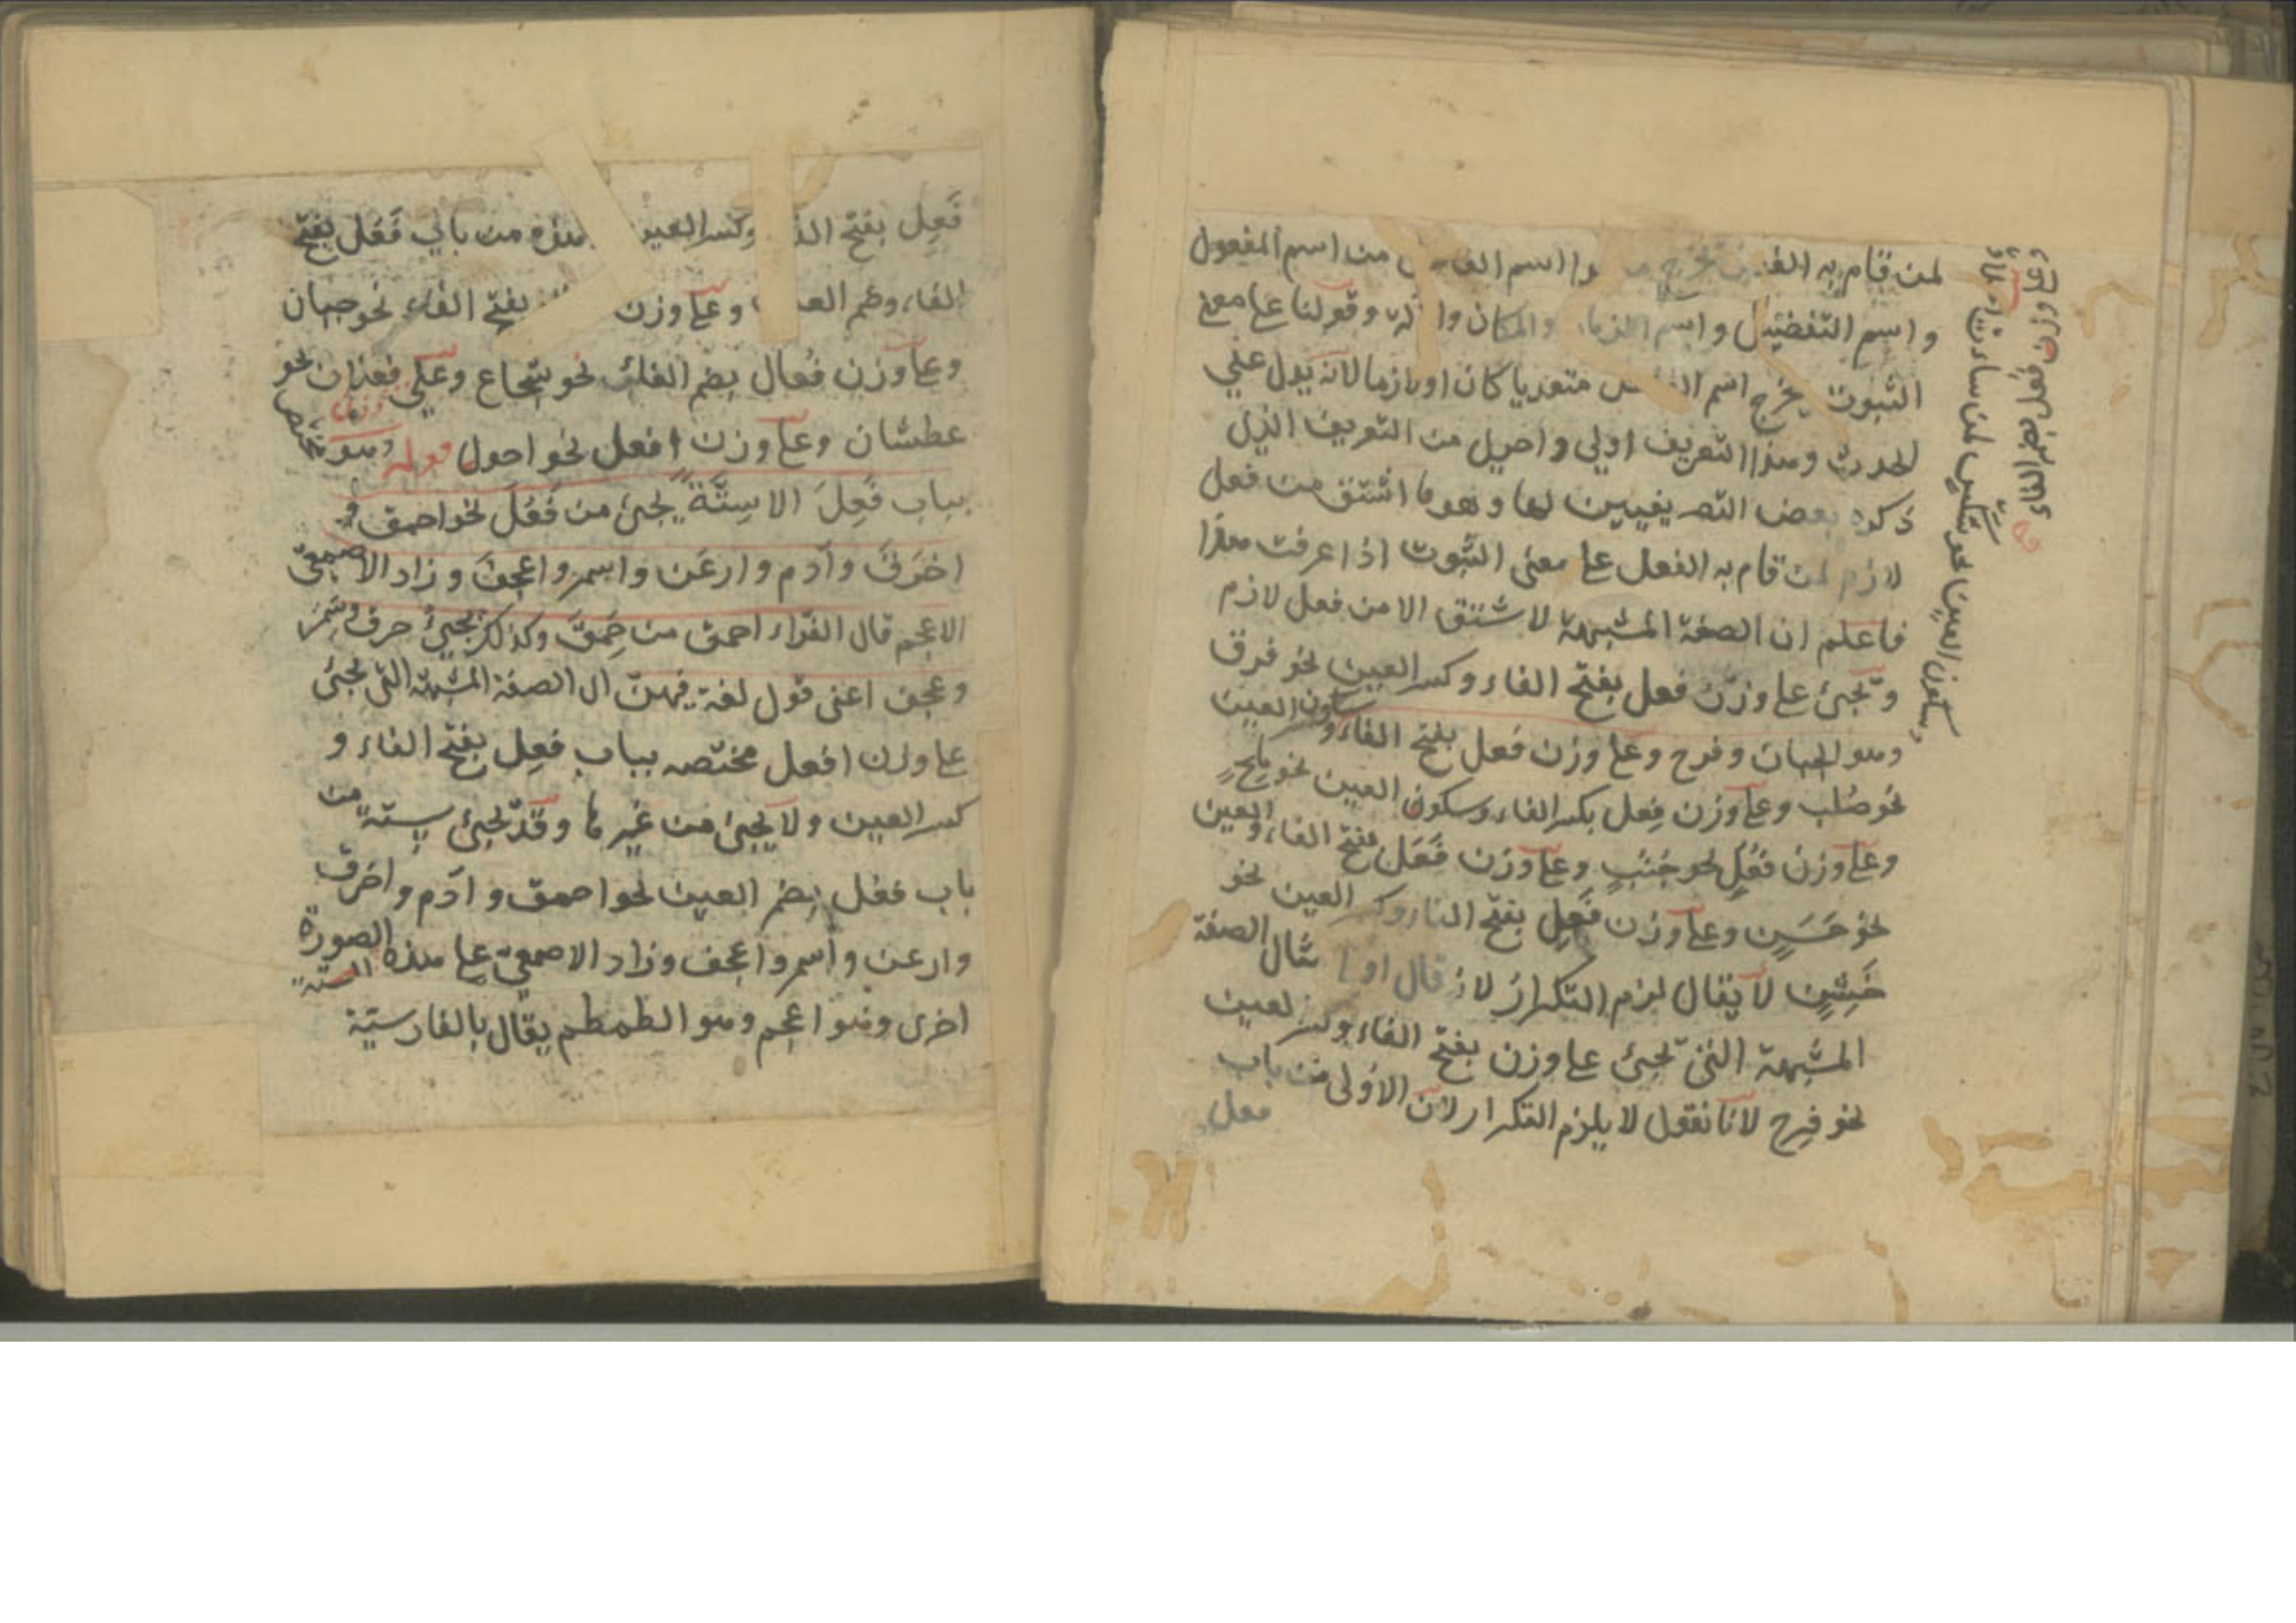 لمن قام به الفعل يخرج اسم المفعول
و اسم التفضيل و اسم الزمان والمكان والآلة وقولنا على معنى
الثبوت يخرج اسم متعديا كان او لازما لانه يدل على
الحدوث وهذا التعريف اولى و احرى من التعريف الذى
ذكره بعض التصريفيين لها وهو ما اشتق من فعل
لازم لمن قام به الفعل على معنى الثبوت اذا عرفت هذا
فاعلم ان الصفة المشبهة لا تشتق الا من فعل لازم
وتجئ على وزن فعل بفتح الفاء وكسر العين نحو فرق
وهو الجبان وفرح وعلى وزن فعل بفتح الفاء وسكون العين
نحو صُلب وعلى وزن فِعل بكسر الفاء وسكون العين نحو مِلحٍ
وعلى وزن فُعُلٍ نحو جُنُبٍ وعلى وزن فَعَل بفتح الفاء والعين
نحو حَسَنٍ وعلى وزن فَعِل بفتح الفاء وكسر العين نحو
خَشِنٍ لا يقال لزم التكرار لانه قال اولا مثال الصفة
المشبهة التى تجئ على وزن بفتح الفاء وكسر العين
نحو فرح لانا نقول لا يلزم التكرار لان الاولى من باب
فعل
وعلى وزن فعل بضم الفاء
وسكون العين نحو شكس لمن ساء خلقه
فَعِل بفتح الفاء وكسر العين وهذه من بابي فَعُل بفتح
الفاء وضم العين وعلى وزن بفتح الفاء نحو جبان
وعلى وزن فُعال بضم الفاء نحو شجاع وعلى وزن فعلان نحو
عطشان وعلى وزن افعل نحو احول قوله وهو مختص
بباب فَعِلَ الا سِتَّة يجئ من فَعُلَ نحو احمق و
اخرق وآدم وارعن واسمر واعجف وزاد الاصمعى
الاعجم قال الفرّاء احمق من حَمِقَ وكذلك يجئ خرق وسمر
وعجف اعنى قول لغة فيهن اى الصفة المشبهة التى تجئ
على وزن افعل مختصه بباب فعِل بفتح الفاء و
كسر العين ولا يجئ من غيرها وقد تجئ ستة من
باب فعل بضم العين نحو احمق و آدم واخرق
وارعن وأسمر واعجف وزاد الاصمعى على هذه الصورة الستة
اخرى وهو اعجم وهو الطمطم يقال بالفارسية